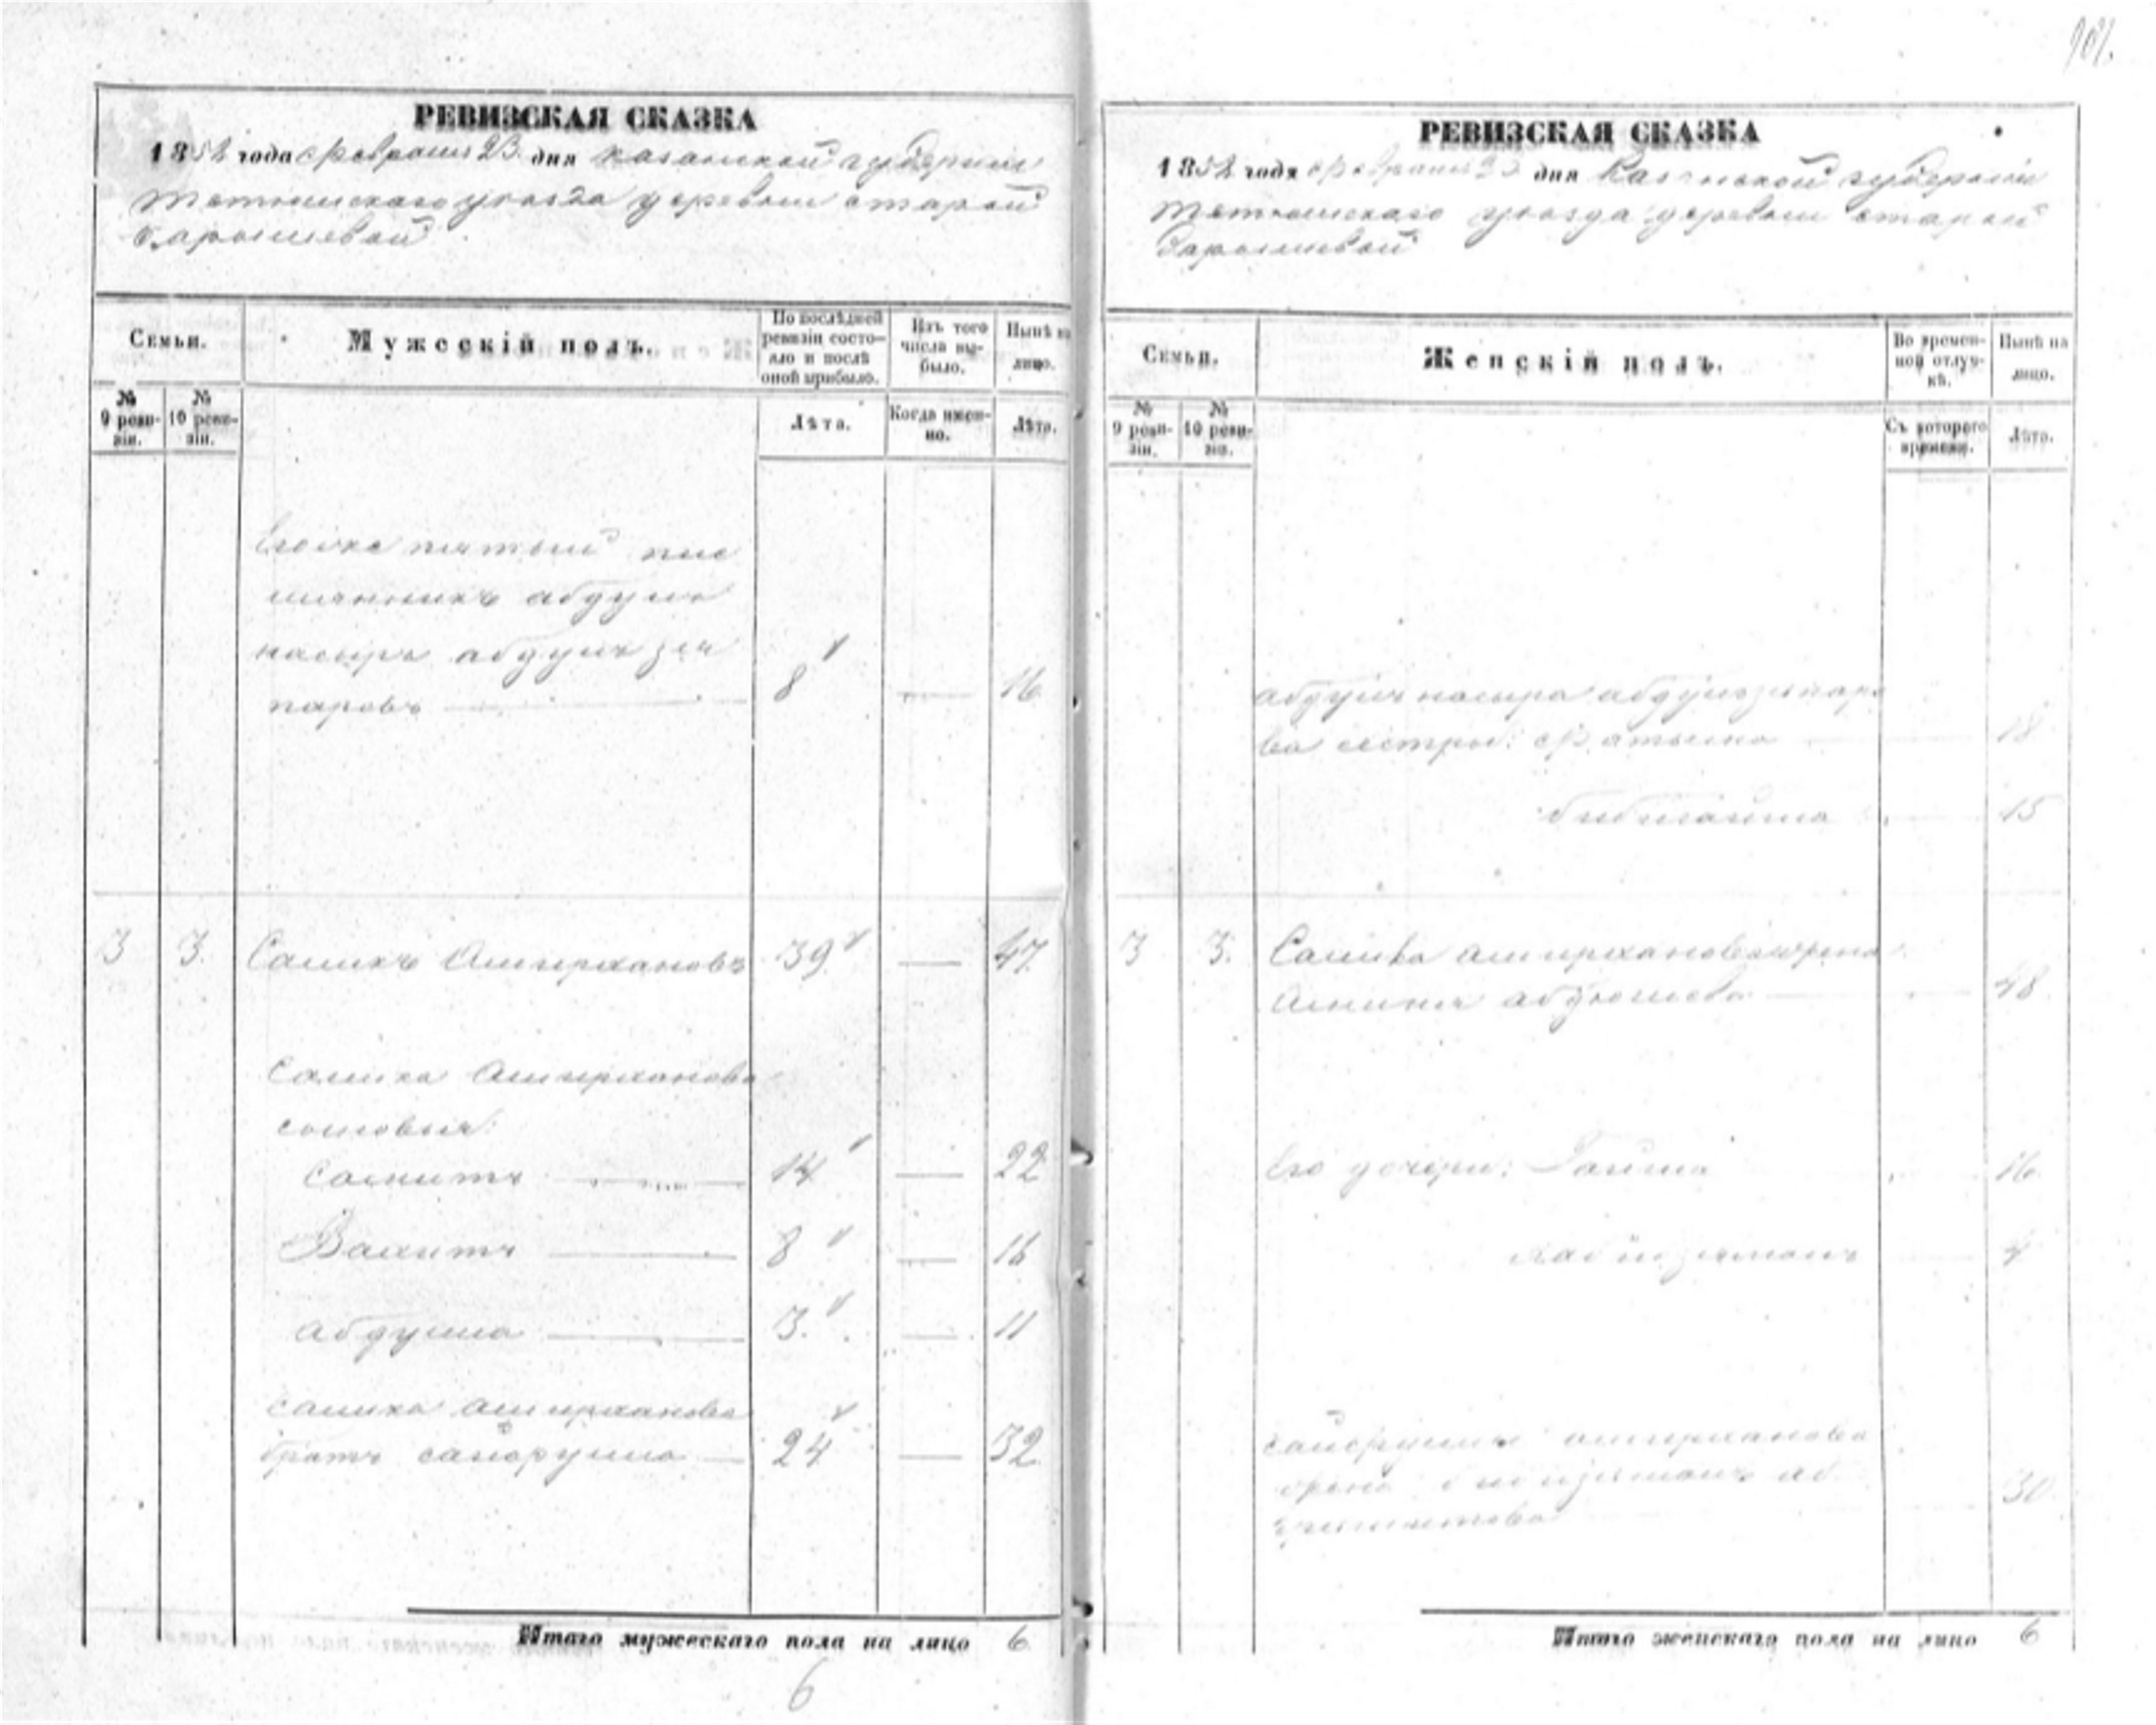 РЕВИЗСКАЯ СКАЗКА
1858 года февраля 23 дня Казанской губернии
Тетюшскаго уезда деревни старой
Барышевой
Семьи.
Мужескій полъ.
По послѣдней ревизіи состояло и послѣ оной прибыло.
Изъ того числа выбыло.
Нынѣ на лицо.
№ 9 ревизіи.
№ 10 ревизіи.
Лѣта.
Когда именно.
Лѣта.
Его же пятый пле
мянникъ абдулъ
насыръ абдулъ зя
паровъ 8 — 16
3 3. Салихъ Амирхановъ 39 — 47
Салиха Амирханова
сыновья:
Самитъ 14 — 22
Вахитъ 8 — 16
абдулла 3. — 11
Салиха амирханова
братъ сайфулла 24 — 32
Итого мужескаго пола на лицо 6
6
РЕВИЗСКАЯ СКАЗКА
1858 года февраля 23 дня Казанской губерніи
Тетюшскаго уезда деревни старой
Барышевой
Семьи.
Женскій полъ.
Во временной отлучкѣ.
Нынѣ на лицо.
№ 9 ревизіи.
№ 10 ревизіи.
Съ котораго времени.
Лѣта.
абдулъ насыра абдулъзяпаро
ва сестры: фатыма 18
15
3 3. Салиха амирханова жена
48
Его дочери: 16
4
сайфуллы амирханова
жена 30
Итого женскаго пола на лицо 6